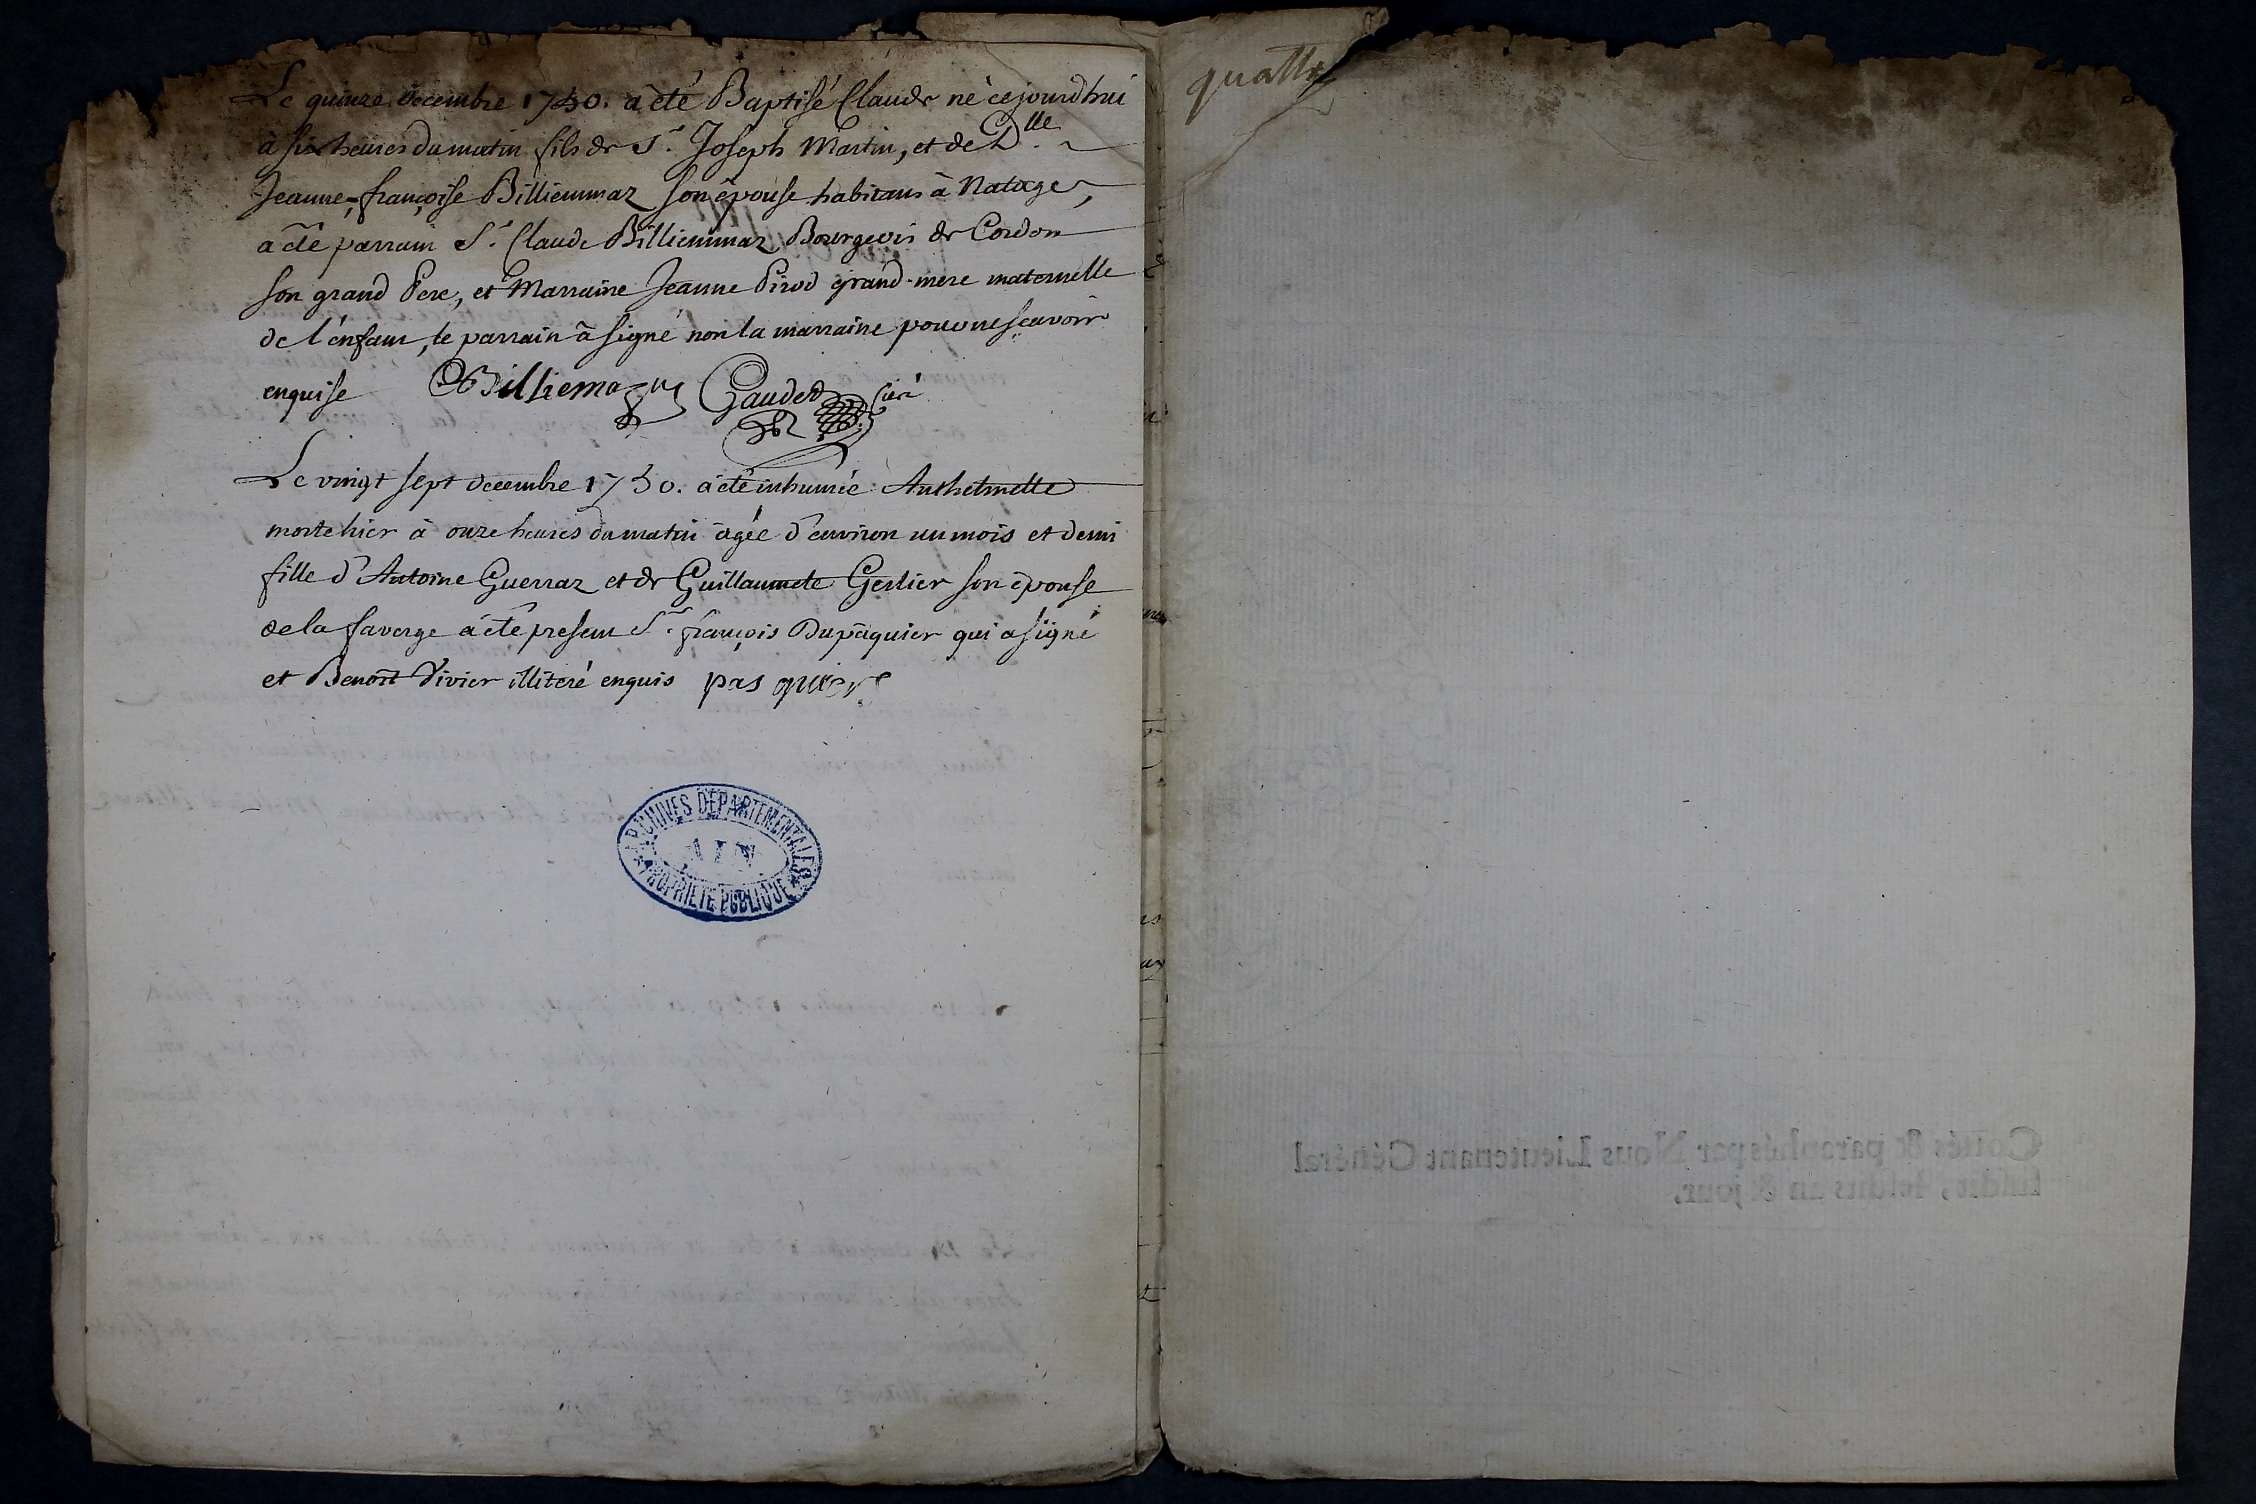 Le quinze decembre 1750. a été Baptisé Claude né ce jourdhui
à six heures du matin fils de Sr. Joseph Martin, et de Dlle.
Jeanne-françoise Billiemmaz son épouse habitans à Natage,
a été parrain Sr. Claude Billiemmaz Bourgeois de Cordon
son grand Pere, et Marraine Jeanne Pirod grand-mere maternelle
de l'enfant, le parrain à signé non la marraine pour ne sçavoir
enquise Billiemaz Gaudet Curé
Le vingt sept decembre 1750. a été inhumée Anthelmette
morte hier à onze heures du matin âgée d'environ un mois et demi
fille d'Antoine Guerraz et de Guillaumete Gerlier son épouse
de la faverge a été present Sr. françois Dupâquier qui a signé
et Benoit Vivier illiteré enquis pas quier
ARCHIVES DEPARTEMENTALES
AIN
PROPRIETE PUBLIQUE
quatre
Cottés & paraphés par Nous Lieutenant Général
susdit, lesdits an & jour.